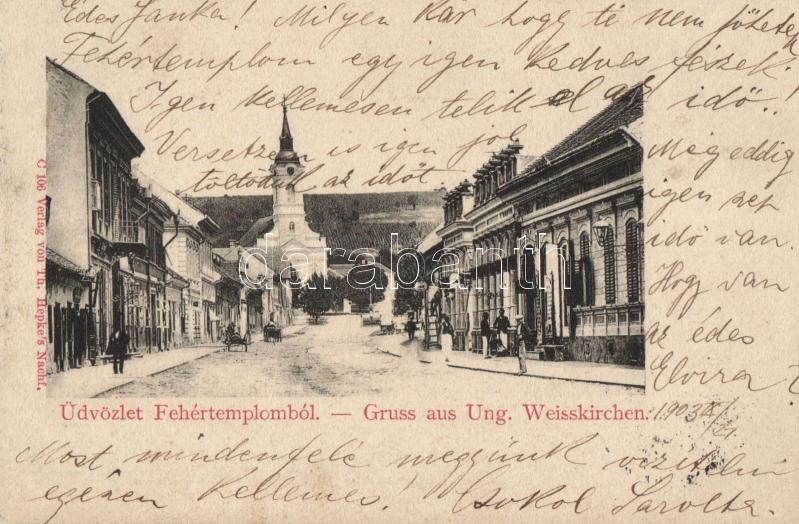 Édes Janka! Milyen kár hogy té nem jöhetek
Fehértemplom egy igen kedves fészek.
Igen kellemesen telik el az idő.
Versetzen is igen jól
töltöttük az időt.
Még eddig
igen szép
idő van.
Hogy van
az édes
Elvira?
1903
C 106 Verlag von Th. Hepke's Nachf.
darabanth
Üdvözlet Fehértemplomból. — Gruss aus Ung. Weisskirchen.
Most mindenfelé megyünk vizitelni
egészen kellemes! Csokol Sarolta.